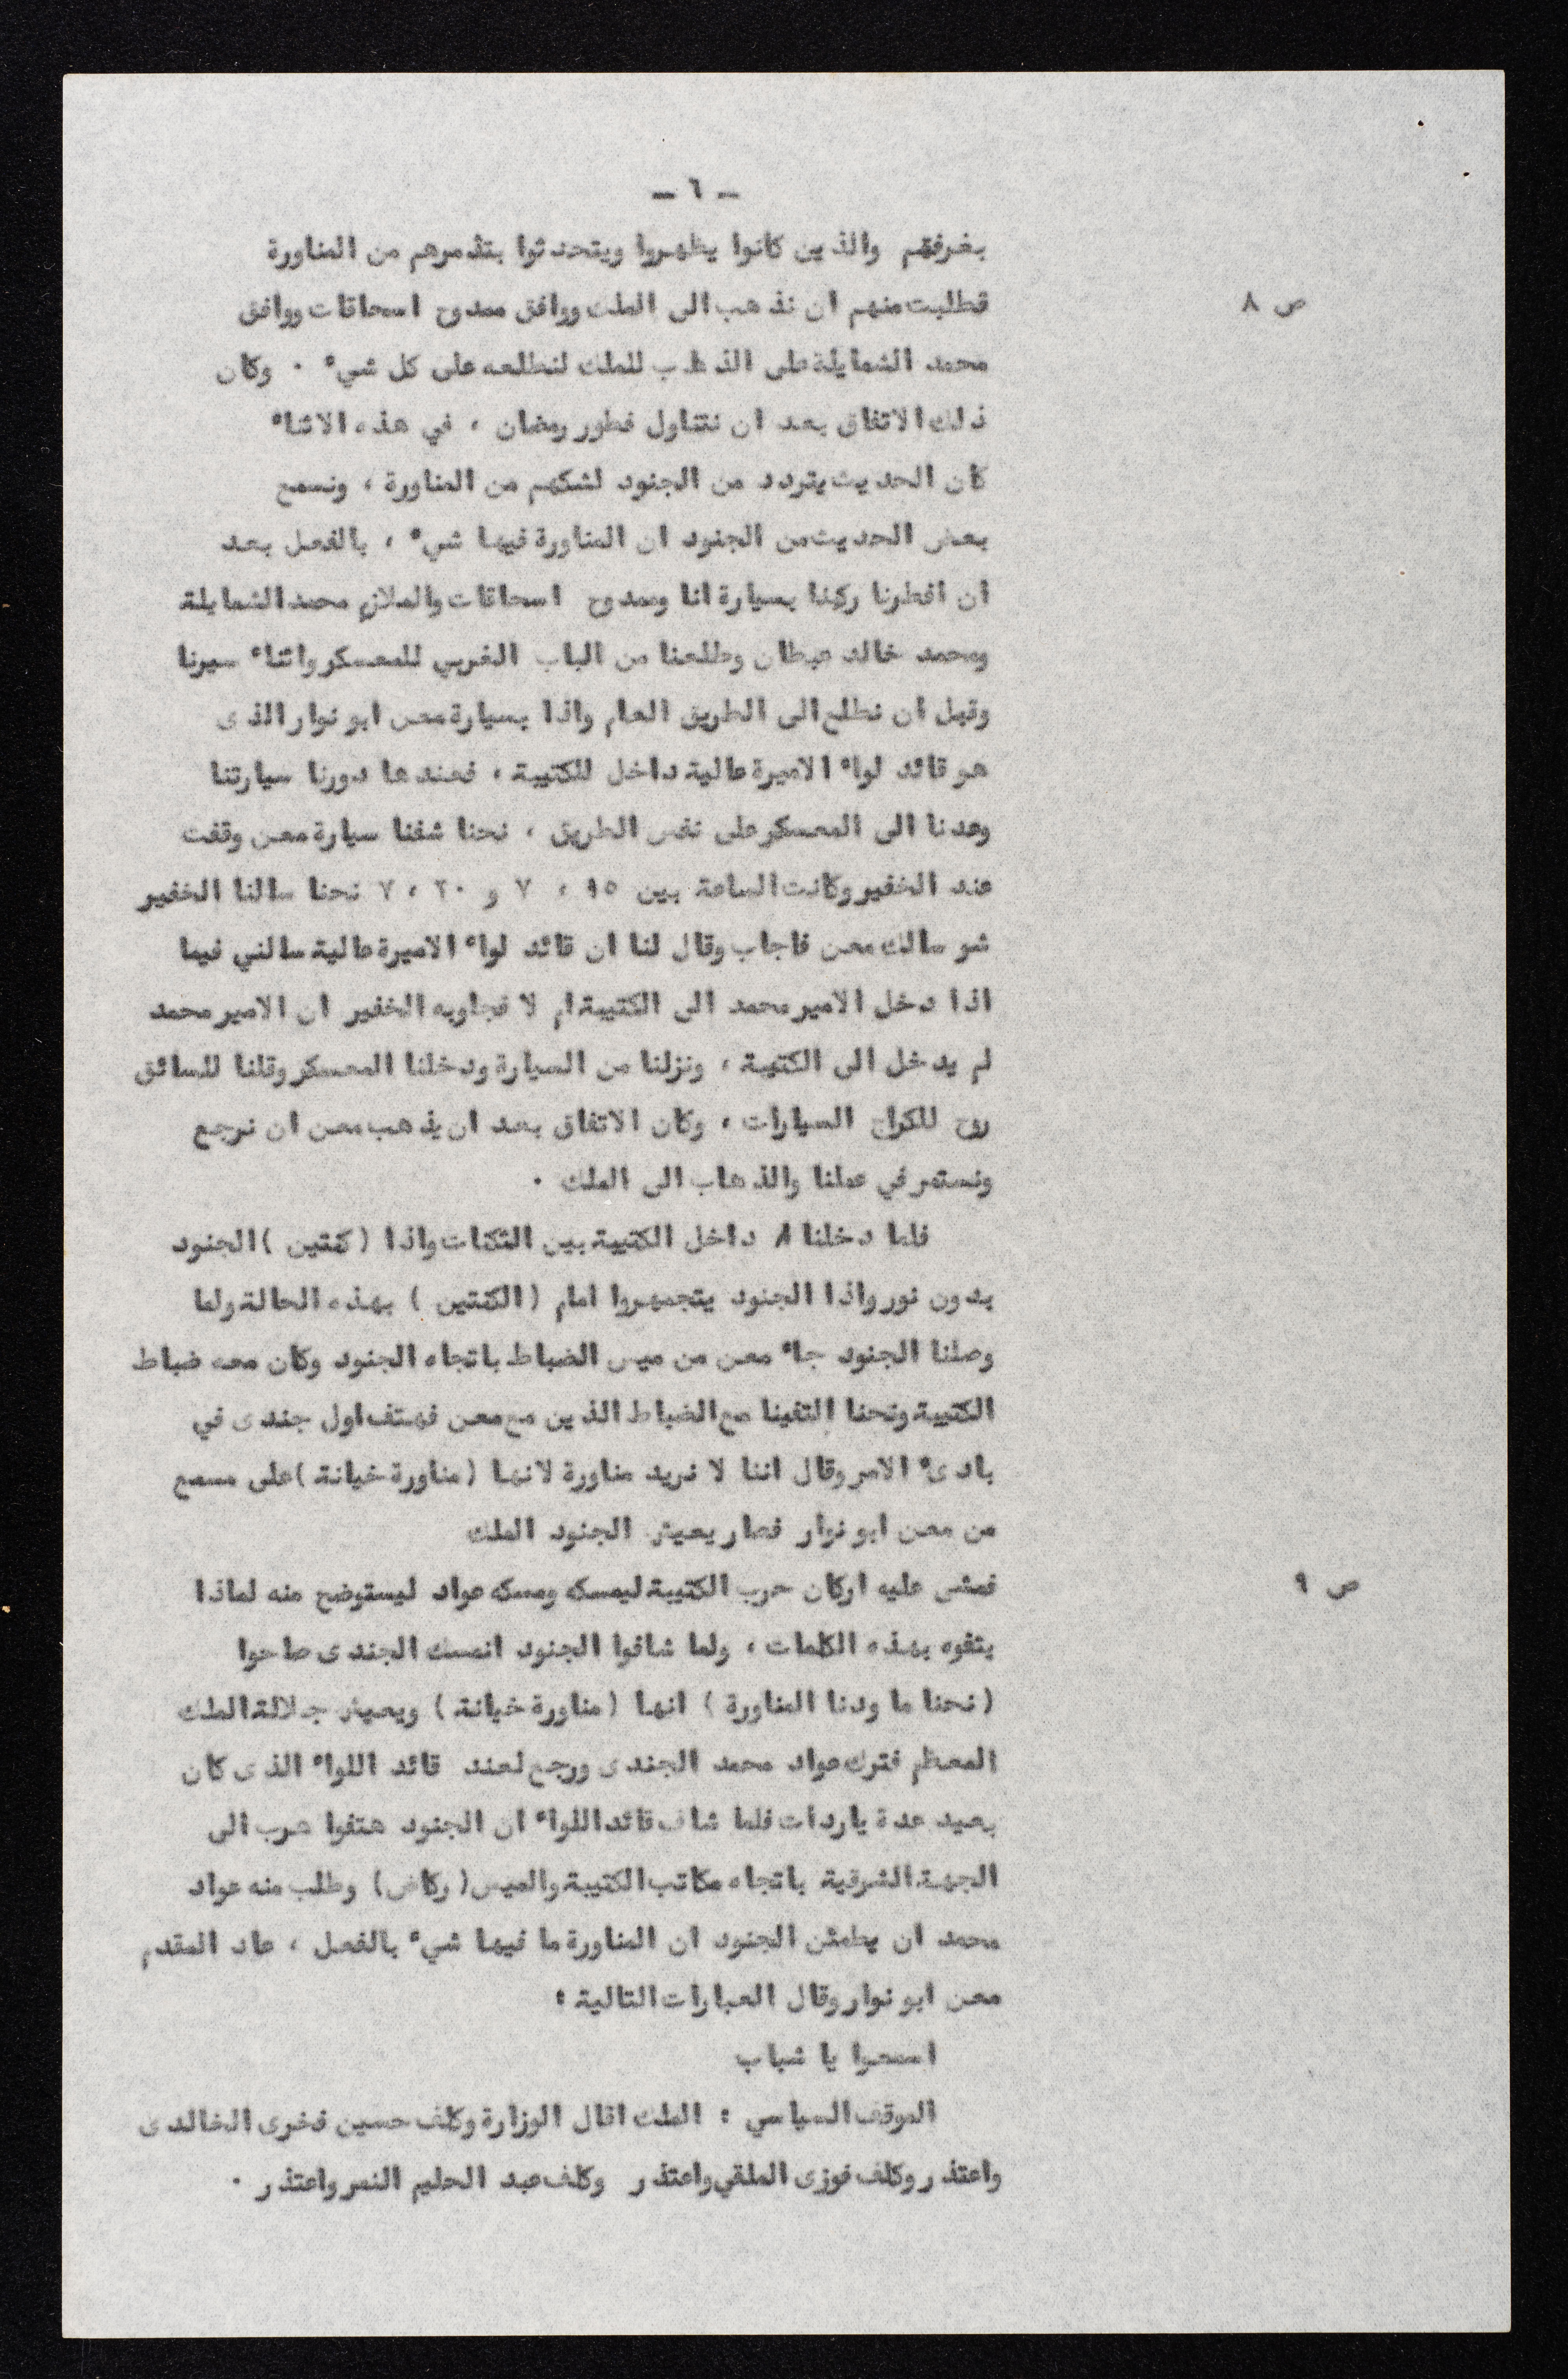 ـ ٦ ـ
بغرفهم والذين كانوا يظهروا ويتحدثوا بتذمرهم من المناورة
ص ٨
فطلبت منهم ان نذهب الى الملك ووافق ممدوح اسحاقات ووافق
محمد الشمايلة على الذهاب للملك لنطلعه على كل شيء . وكان
ذلك الاتفاق بعد ان نتناول فطور رمضان ، في هذه الاثناء
كان الحديث يتردد من الجنود لشكهم من المناورة ، ونسمع
بعض الحديث من الجنود ان المناورة فيها شيء ، بالفعل بعد
ان افطرنا ركبنا بسيارة انا وممدوح اسحاقات والملازم محمد الشمايلة
ومحمد خالد عبطان وطلعنا من الباب الغربي للمعسكر واثناء سيرنا
وقبل ان نطلع الى الطريق العام واذا بسيارة معن ابو نوار الذى
هو قائد لواء الاميرة عالية داخل للكتيبة ، فعندها دورنا سيارتنا
وعدنا الى المعسكر على نفس الطريق ، نحنا شفنا سيارة معن وقفت
عند الخفير وكانت الساعة بين ١٥ ، ٧ و ٢٠ ، ٧ نحنا سالنا الخفير
شو سالك معن فاجاب وقال لنا ان قائد لواء الاميرة عالية سالني فيما
اذا دخل الامير محمد الى الكتيبة ام لا فجاوبه الخفير ان الامير محمد
لم يدخل الى الكتيبة ، ونزلنا من السيارة ودخلنا المعسكر وقلنا للسائق
روح للكراج السيارات ، وكان الاتفاق بعد ان يذهب معن ان نرجع
ونستمر في عملنا والذهاب الى الملك .
فلما دخلنا داخل الكتيبة بين الثكنات واذا ( كنتين ) الجنود
بدون نور واذا الجنود يتجمهروا امام ( الكنتين ) بهذه الحالة ولما
وصلنا الجنود جاء معن من ميس الضباط باتجاه الجنود وكان معه ضباط
الكتيبة ونحنا التقينا مع الضباط الذين مع معن فهتف اول جندى في
بادىء الامر وقال اننا لا نريد مناورة لانها ( مناورة خيانة ) على مسمع
من معن ابو نوار فصار يعيش الجنود الملك
ص ٩
فمشى عليه اركان حرب الكتيبة ليمسكه ومسكه عواد ليستوضح منه لماذا
يتفوه بهذه الكلمات ، ولما شافوا الجنود انمسك الجندى صاحوا
( نحنا ما ودنا المناورة ) انها ( مناورة خيانة ) ويعيش جلالة الملك
المعظم فترك عواد محمد الجندى ورجع لعند قائد اللواء الذى كان
بعيد عدة ياردات فلما شاف قائد اللواء ان الجنود هتفوا هرب الى
الجهة الشرقية باتجاه مكاتب الكتيبة والميس ( ركاض ) وطلب منه عواد
محمد ان يطمئن الجنود ان المناورة ما فيها شيء بالفعل ، عاد المقدم
معن ابو نوار وقال العبارات التالية :
اسمعوا يا شباب
الموقف السياسي : الملك اقال الوزارة وكلف حسين فخرى الخالدى
واعتذر وكلف فوزى الملقي واعتذر وكلف عبد الحليم النمر واعتذر .